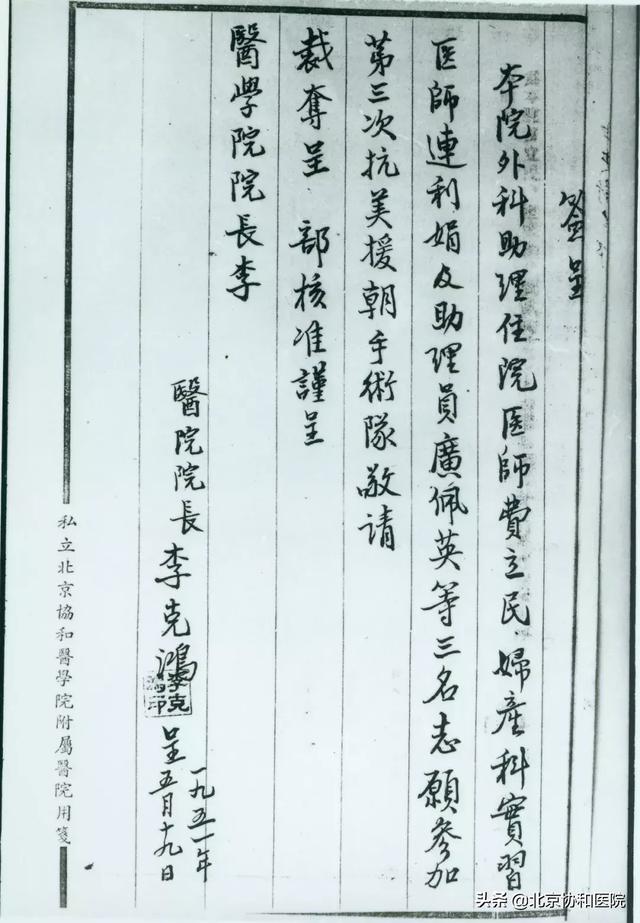 签呈
本院外科助理住院医師費立民、婦產科實習
医師連利娟及助理員廣佩英等三名志願參加
第三次抗美援朝手術隊敬请
裁奪呈 部核准謹呈
醫学院院長李
醫院院長 李克鴻 呈
李克鴻印
一九五一年
五月十九日
私立北京協和醫學院附属醫院用箋
头条 @北京协和医院